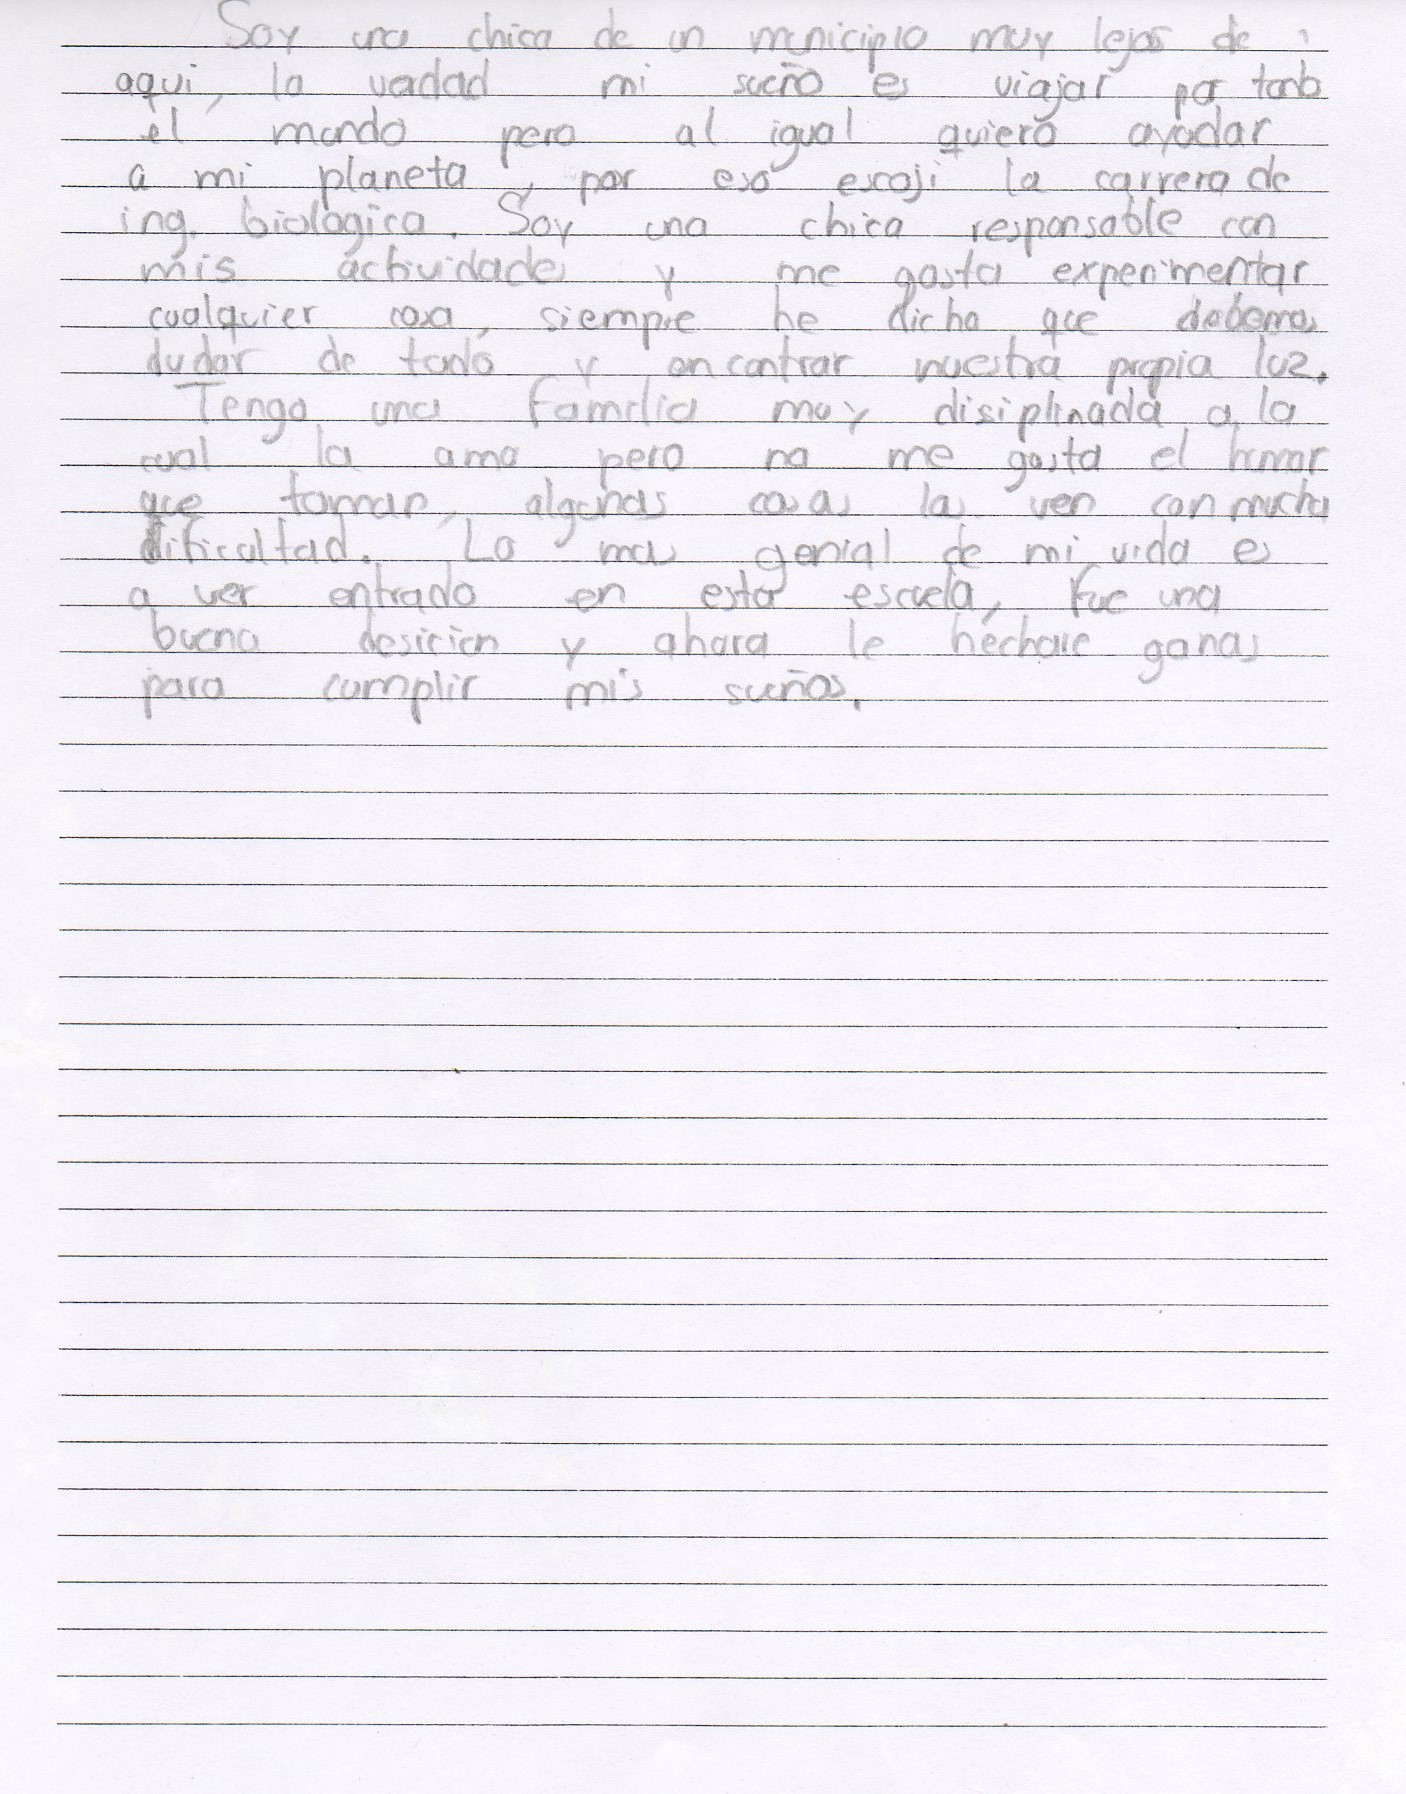 Soy una chica de un municipio muy lejos de
aqui, la verdad mi sueño es viajar por tondo
el mundo pero al igual quiero ayudar
a mi planeta, por eso escoji la carrera de
ing. biologica. Soy una chica responsable con
mis actividades y me gusta experimentar
cualquier cosa, siempre he dicho que debemos
dudar de tondo y encontrar nuestra propia luz.
Tengo una familia muy disiplinada a la
cual la amo pero no me gusta el humor
que toman, algunas cosas las ven con mucha
dificultad. Lo mas genial de mi vida es
a ver entrado en esta escuela, fue una
buena desicion y ahora le hechare ganas
para cumplir mis sueños.